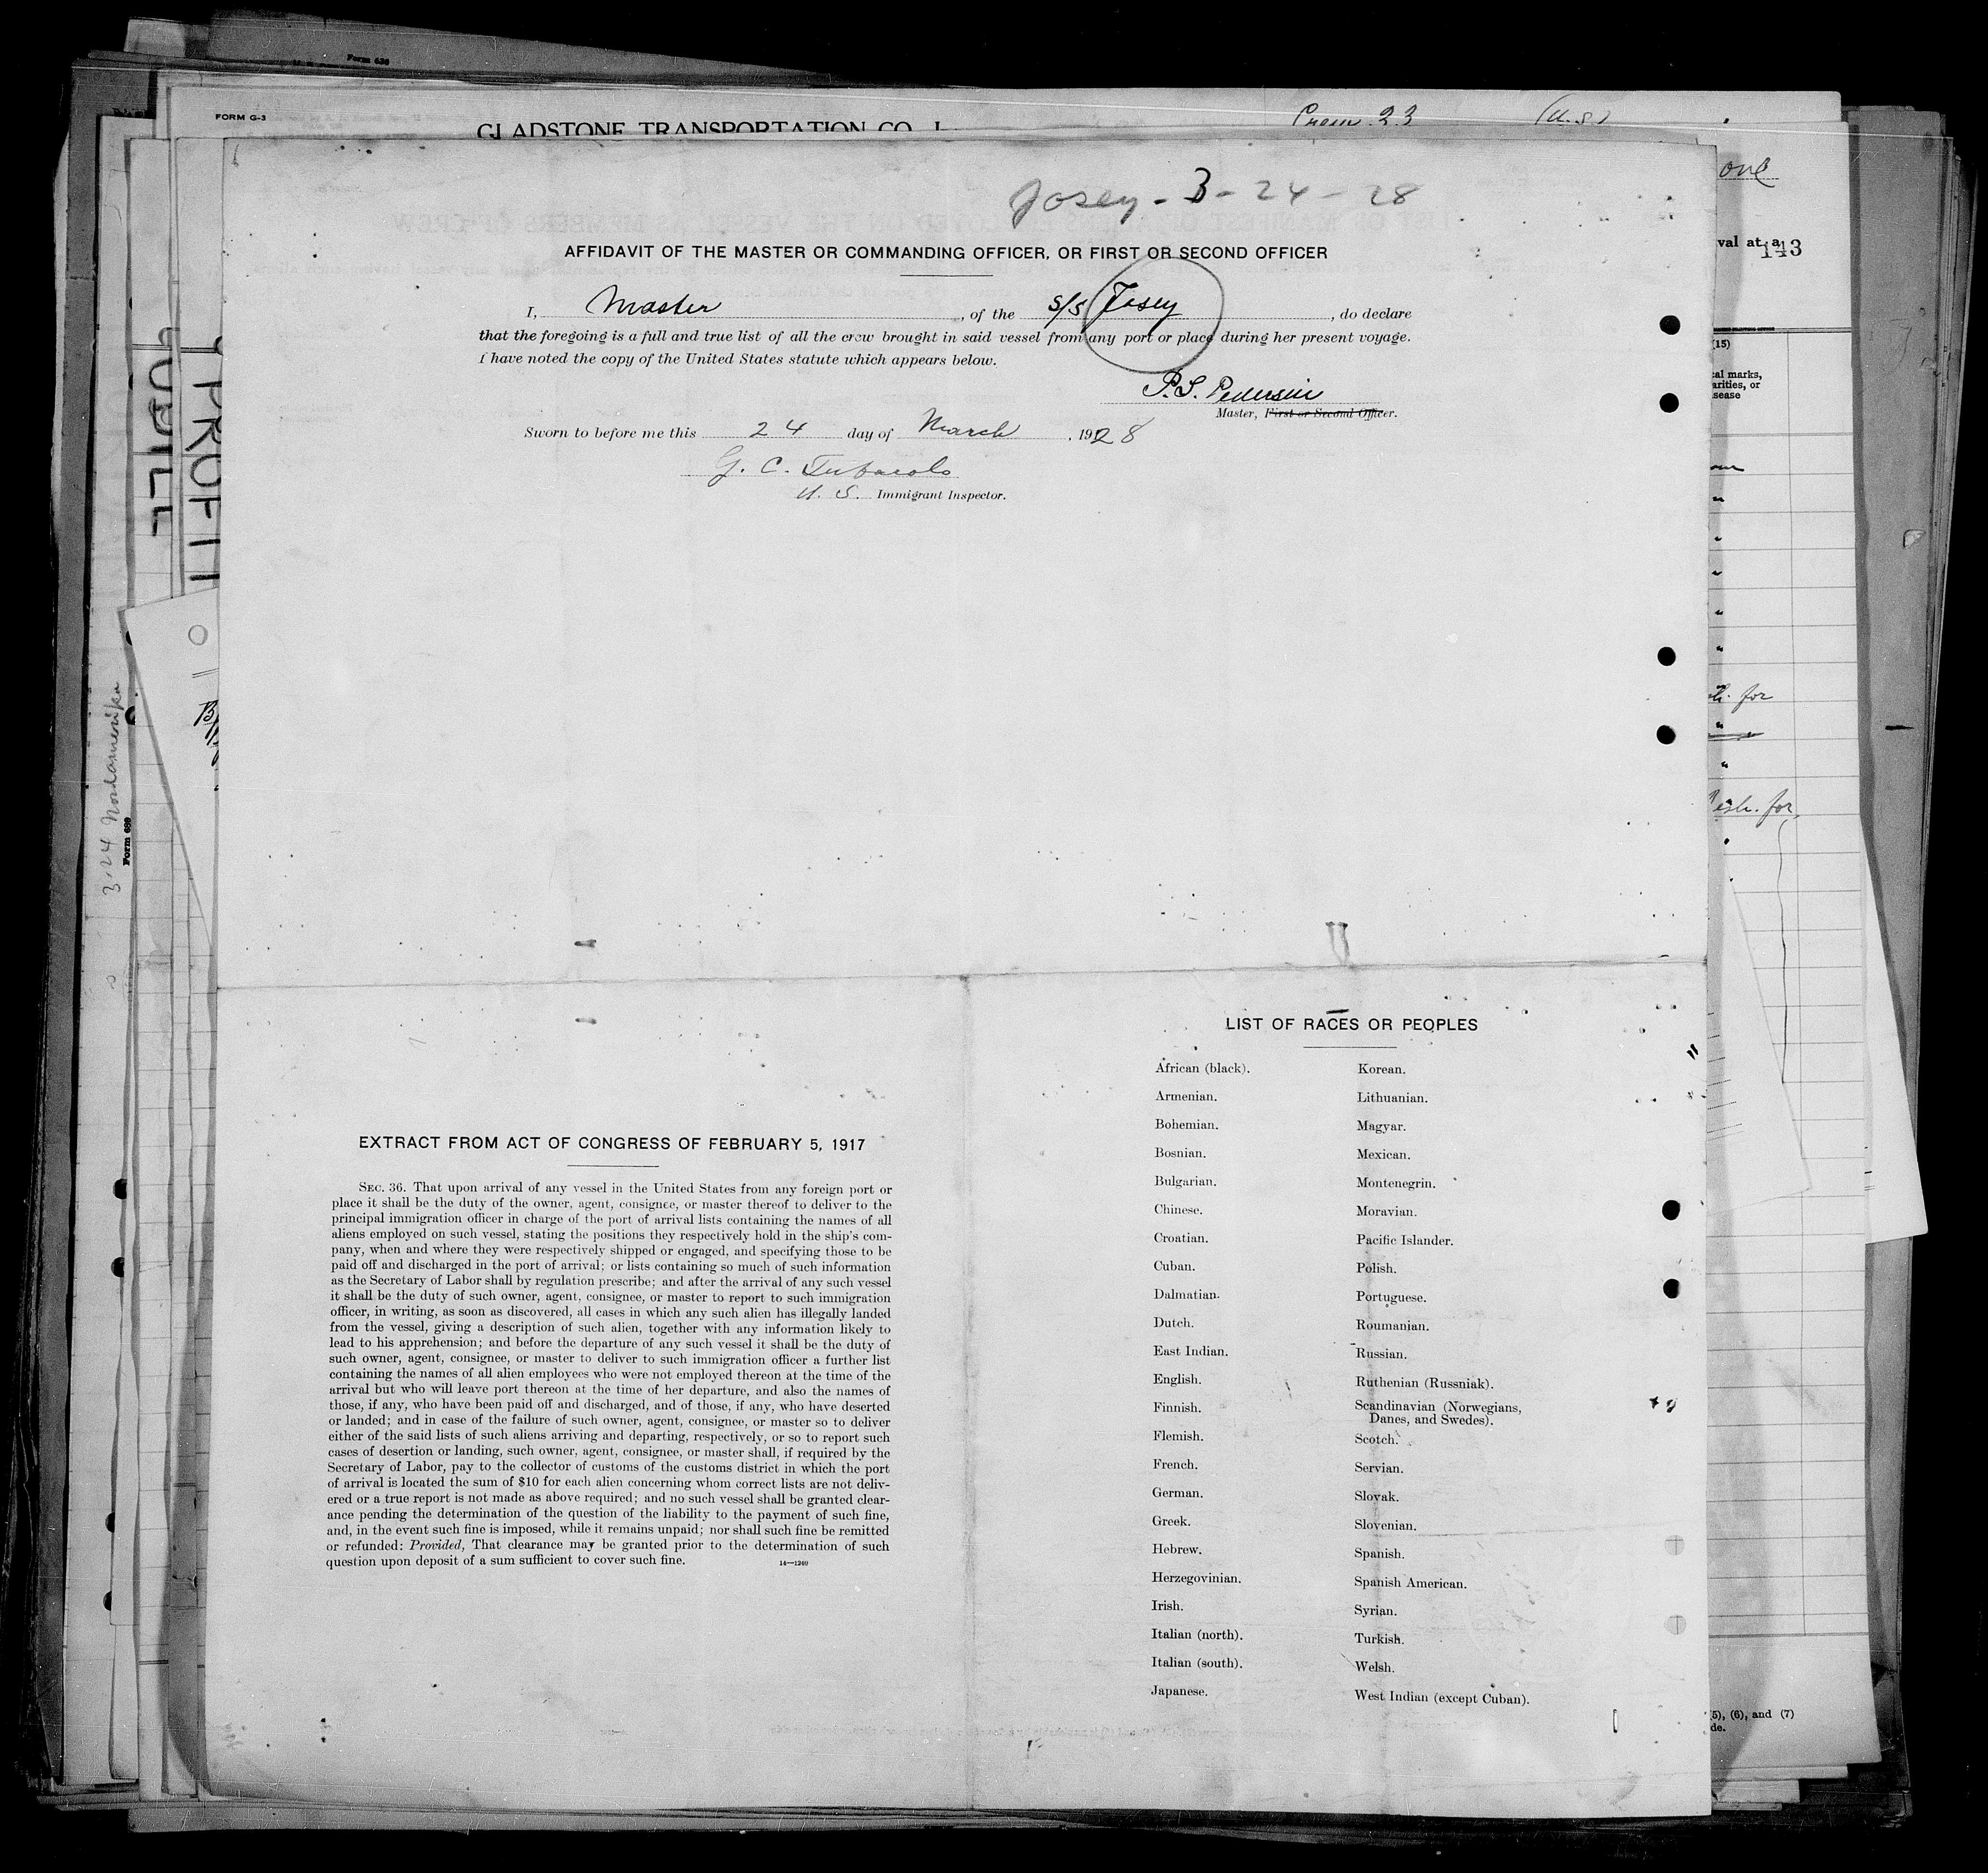 Form 630
FORM G-3
GLADSTONE TRANSPORTATION CO.
Crew 23 (U.S.)
Josey - 3 - 24 - 28
val at a
143
AFFIDAVIT OF THE MASTER OR COMMANDING OFFICER, OR FIRST OR SECOND OFFICER
I, Master, of the S/S Josey, do declare
that the foregoing is a full and true list of all the crew brought in said vessel from any port or place during her present voyage.
I have noted the copy of the United States statute which appears below.
P.S. Pedersen
Master, First or Second Officer.
Sworn to before me this 24 day of March, 1928
G. C.
U. S. Immigrant Inspector.
(15)
cal marks,
arities, or
sease
PROFIT
3-24 Nordamerika
Form 680
h. for
esh. for
LIST OF RACES OR PEOPLES
African (black).
Armenian.
Bohemian.
Bosnian.
Bulgarian.
Chinese.
Croatian.
Cuban.
Dalmatian.
Dutch.
East Indian.
English.
Finnish.
Flemish.
French.
German.
Greek.
Hebrew.
Herzegovinian.
Irish.
Italian (north).
Italian (south).
Japanese.
Korean.
Lithuanian.
Magyar.
Mexican.
Montenegrin.
Moravian.
Pacific Islander.
Polish.
Portuguese.
Roumanian.
Russian.
Ruthenian (Russniak).
Scandinavian (Norwegians,
Danes, and Swedes).
Scotch.
Servian.
Slovak.
Slovenian.
Spanish.
Spanish American.
Syrian.
Turkish.
Welsh.
West Indian (except Cuban).
EXTRACT FROM ACT OF CONGRESS OF FEBRUARY 5, 1917
SEC. 36. That upon arrival of any vessel in the United States from any foreign port or
place it shall be the duty of the owner, agent, consignee, or master thereof to deliver to the
principal immigration officer in charge of the port of arrival lists containing the names of all
aliens employed on such vessel, stating the positions they respectively hold in the ship's com-
pany, when and where they were respectively shipped or engaged, and specifying those to be
paid off and discharged in the port of arrival; or lists containing so much of such information
as the Secretary of Labor shall by regulation prescribe; and after the arrival of any such vessel
it shall be the duty of such owner, agent, consignee, or master to report to such immigration
officer, in writing, as soon as discovered, all cases in which any such alien has illegally landed
from the vessel, giving a description of such alien, together with any information likely to
lead to his apprehension; and before the departure of any such vessel it shall be the duty of
such owner, agent, consignee, or master to deliver to such immigration officer a further list
containing the names of all alien employees who were not employed thereon at the time of the
arrival but who will leave port thereon at the time of her departure, and also the names of
those, if any, who have been paid off and discharged, and of those, if any, who have deserted
or landed; and in case of the failure of such owner, agent, consignee, or master so to deliver
either of the said lists of such aliens arriving and departing, respectively, or so to report such
cases of desertion or landing, such owner, agent, consignee, or master shall, if required by the
Secretary of Labor, pay to the collector of customs of the customs district in which the port
of arrival is located the sum of $10 for each alien concerning whom correct lists are not deliv-
ered or a true report is not made as above required; and no such vessel shall be granted clear-
ance pending the determination of the question of the liability to the payment of such fine,
and, in the event such fine is imposed, while it remains unpaid; nor shall such fine be remitted
or refunded: Provided, That clearance may be granted prior to the determination of such
question upon deposit of a sum sufficient to cover such fine. 14—1240
(5), (6), and (7)
de.